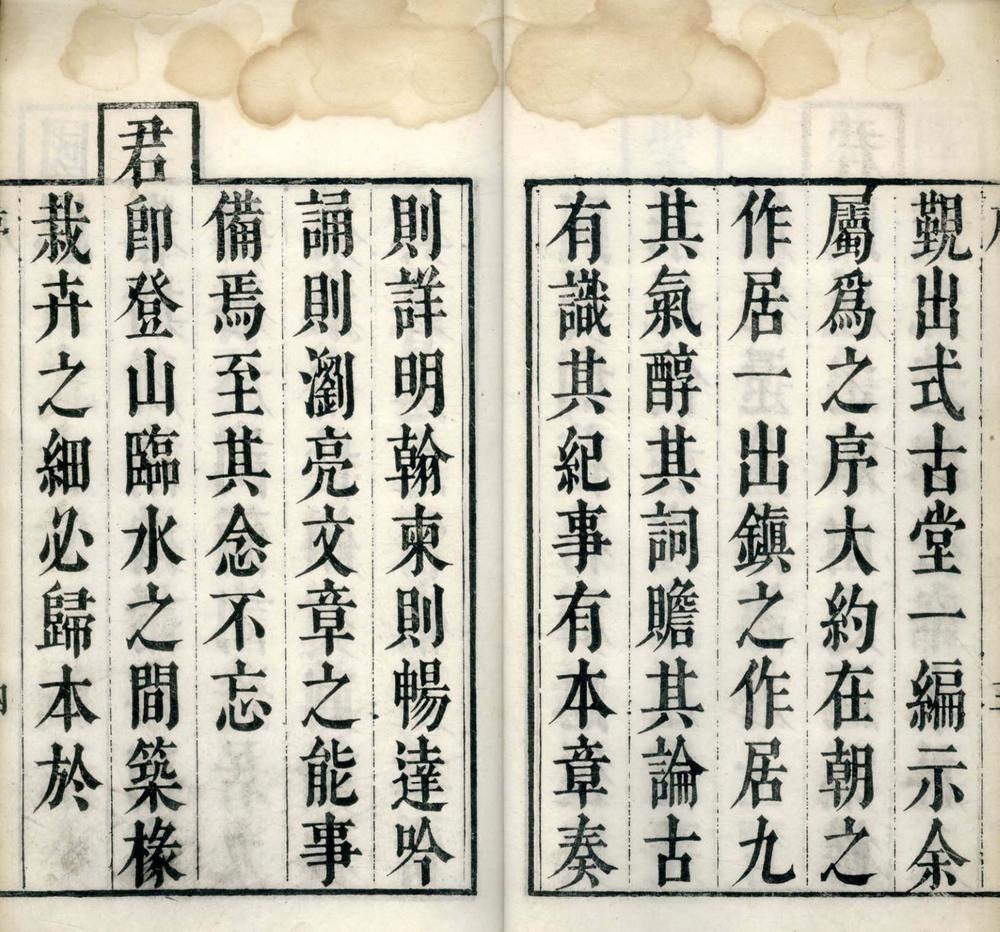 覲出式古堂一編示余
屬爲之序大約在朝之
作居一出鎮之作居九
其氣醇其詞贍其論古
有識其紀事有本章奏
則詳明翰柬則暢達吟
誦則瀏亮文章之能事
備焉至其念不忘
君卽登山臨水之間築椽
栽卉之細必歸本於